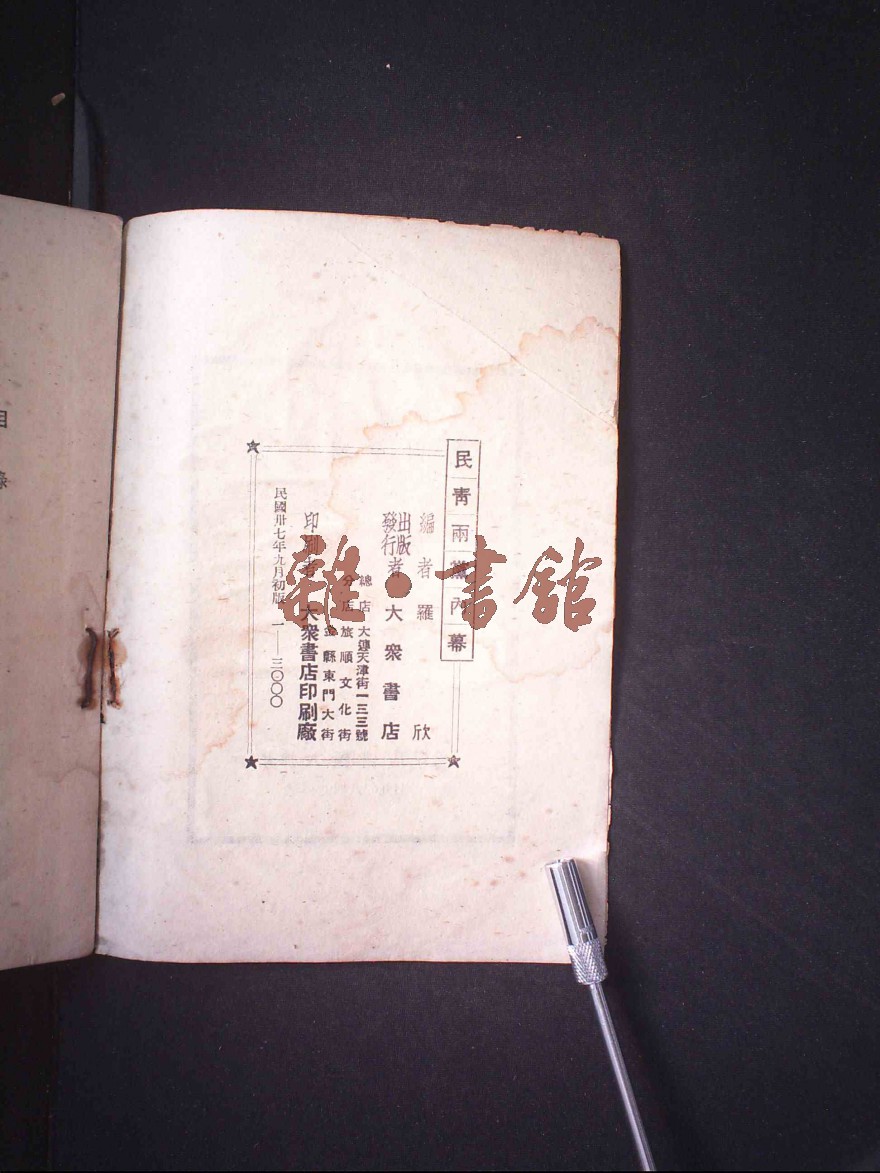 民青兩黨內幕
編者 羅欣
出版
發行者 大衆書店
總店 大連天津街一三三號
分店 旅順文化街
金縣東門大街
印刷者 大衆書店印刷廠
民國卅七年九月初版 一—三〇〇〇
雜·書館
目錄